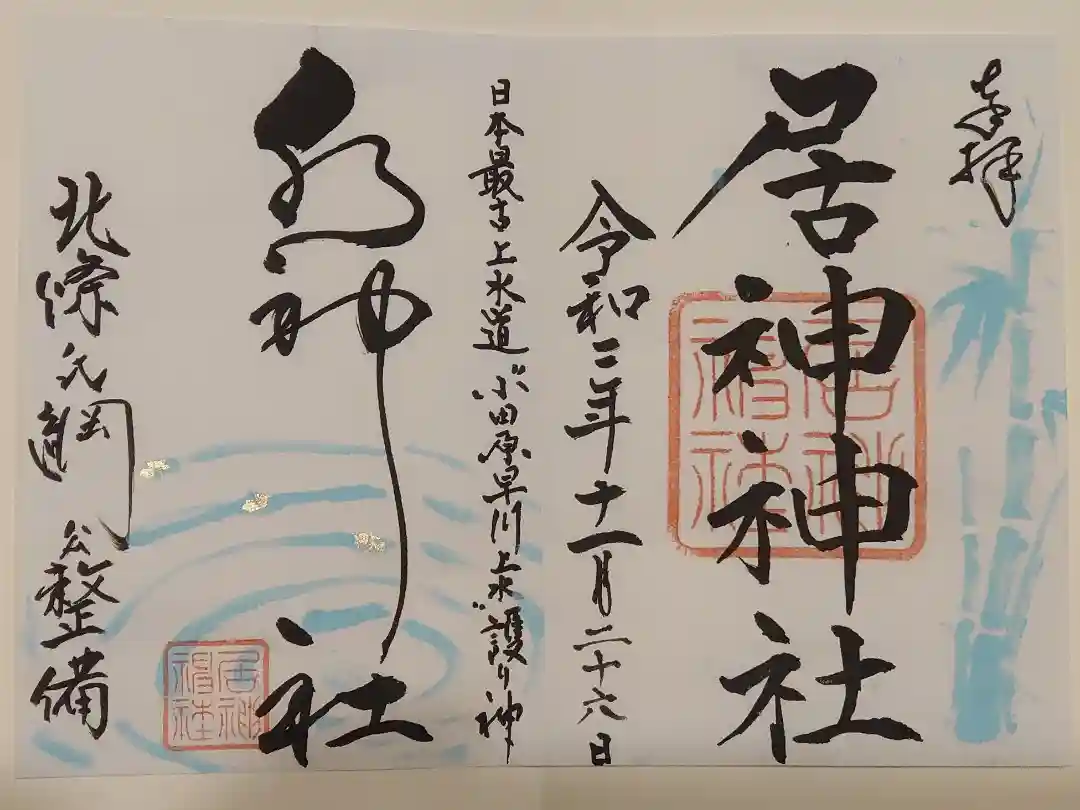 奉拝
居神神社
居神
神社
令和二年十一月二十六日
日本最古上水道“小田原早川上水”護り神
水神社
居神
神社
北條氏綱公整備